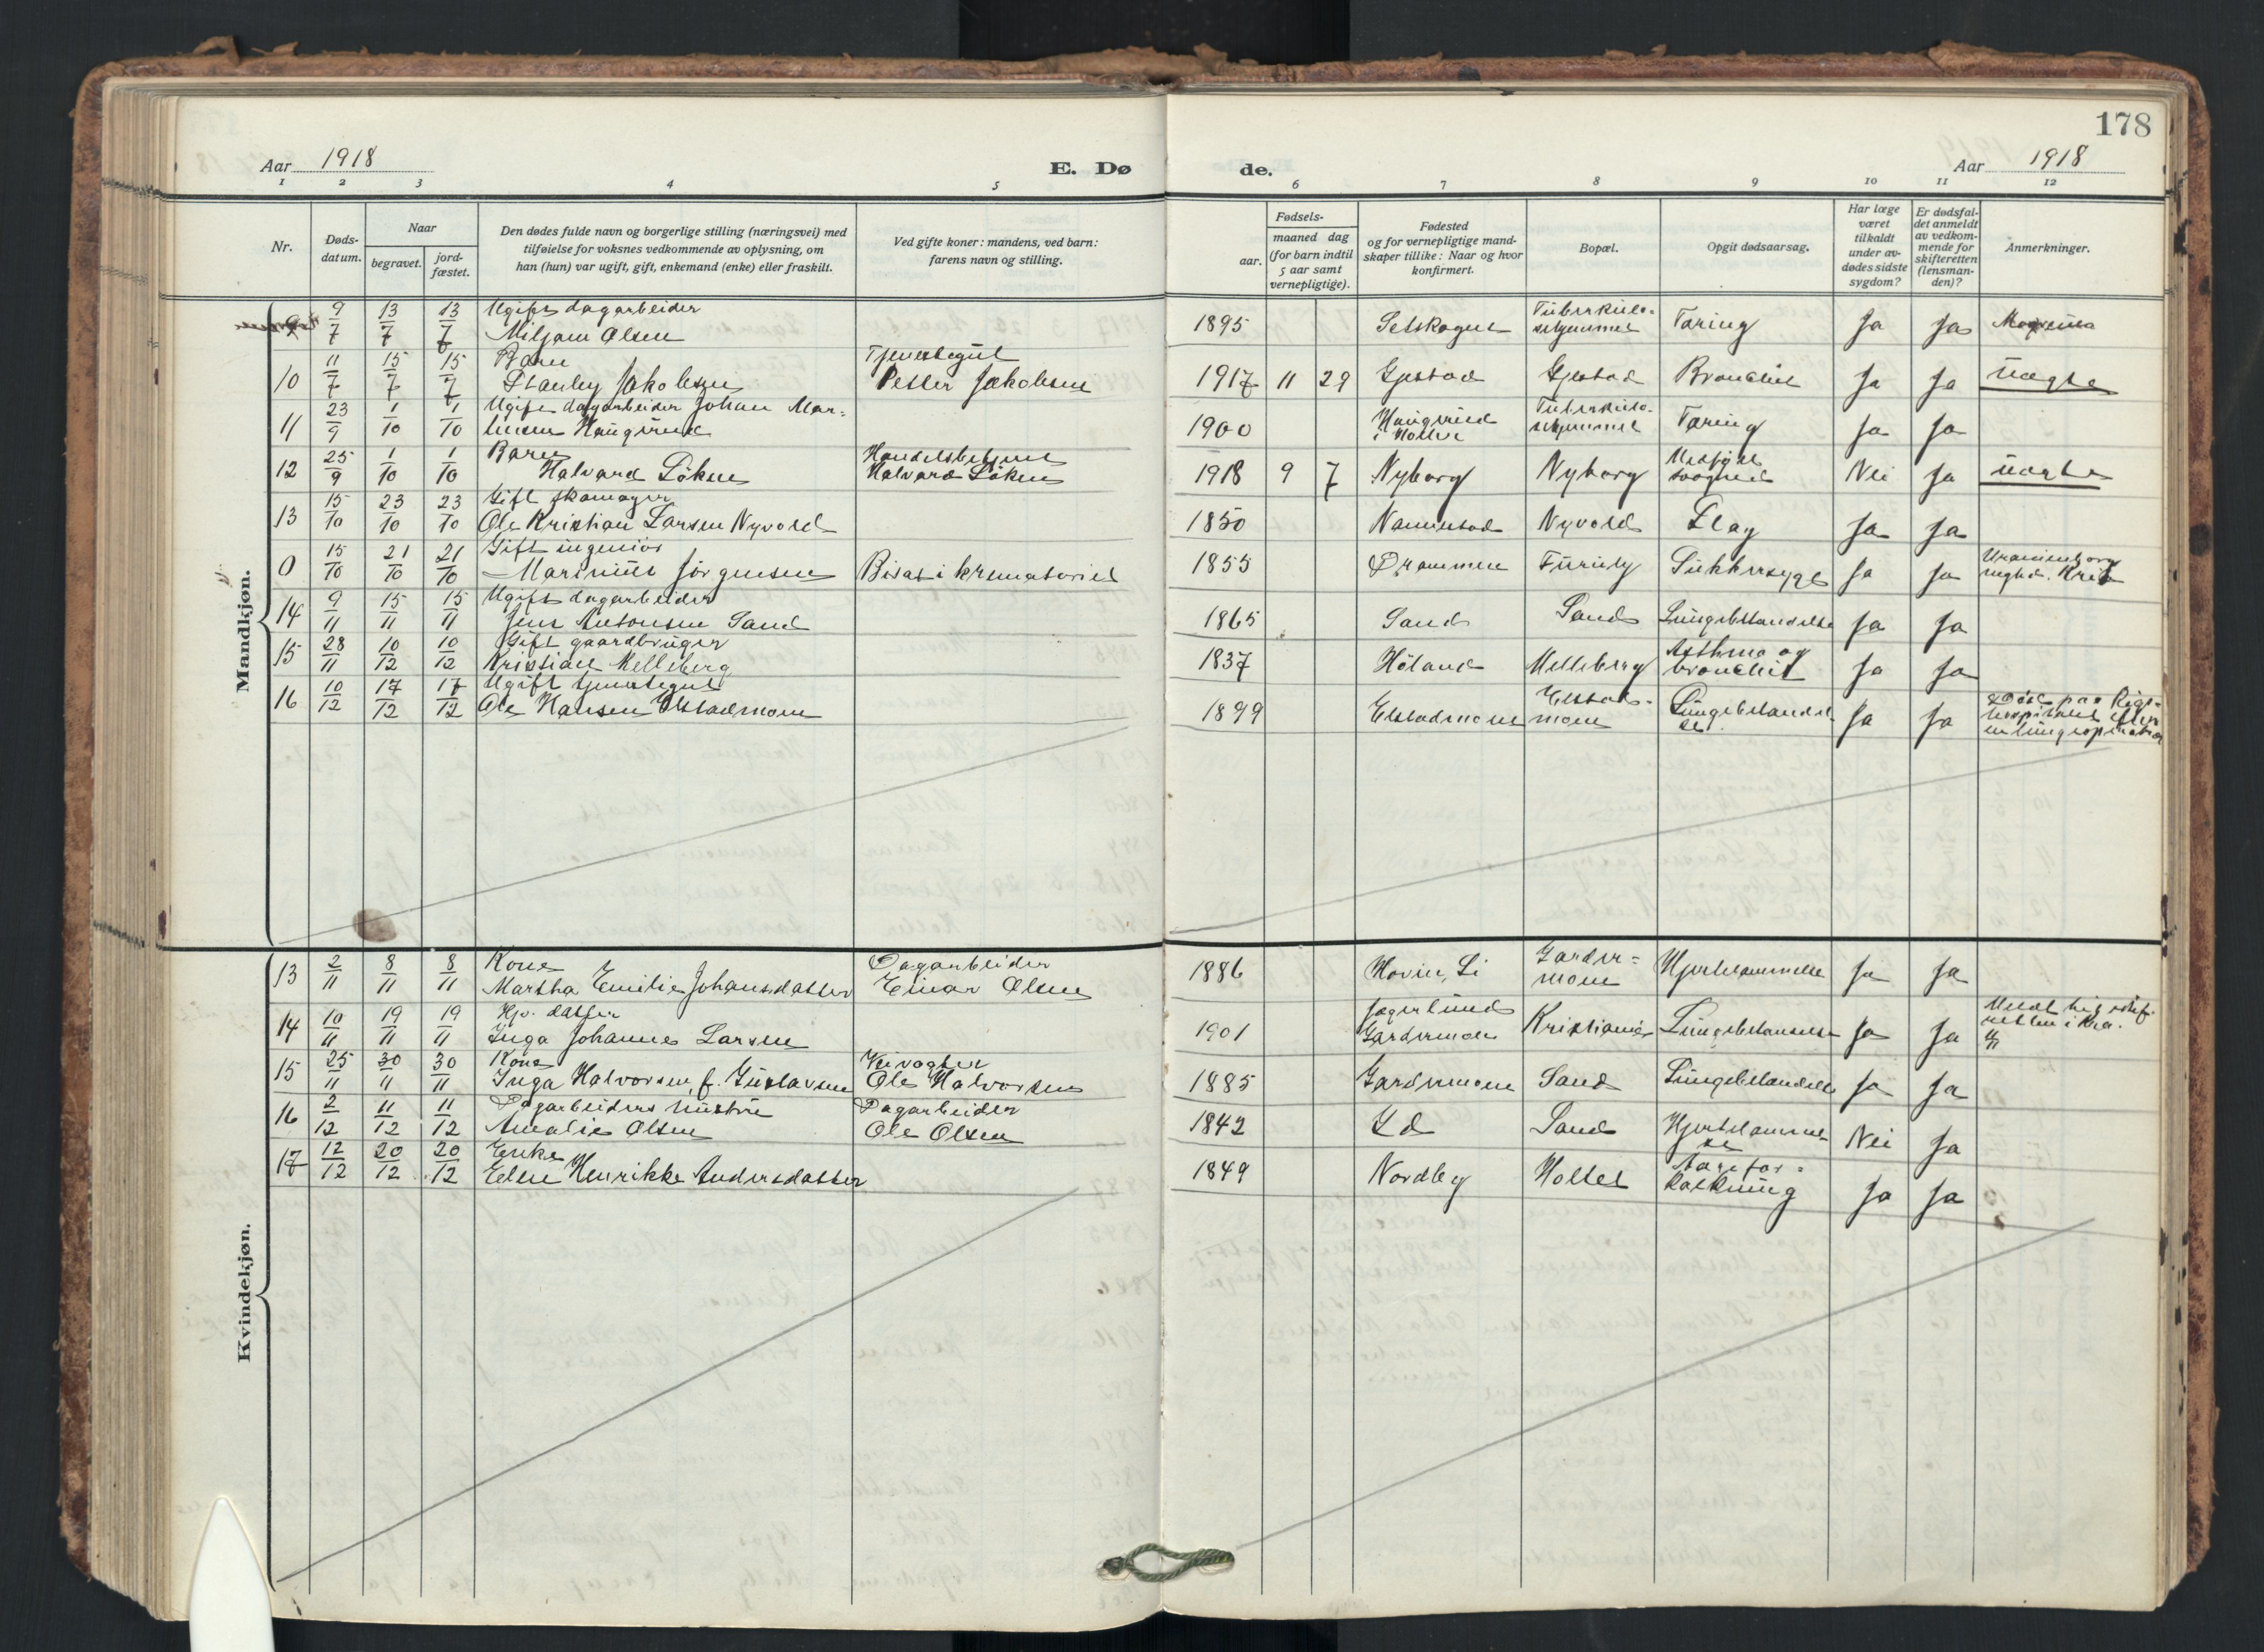 178
Aar 1918
E. Dø
de.
Aar 1918
1 2 3 4 5 6 7 8 9 10 11 12
Nr.
Døds-
datum.
Naar
begravet.
jord-
fæstet.
Den dødes fulde navn og borgerlige stilling (næringsvei) med
tilføielse for voksnes vedkommende av oplysning, om
han (hun) var ugift, gift, enkemand (enke) eller fraskilt.
Ved gifte koner: mandens, ved barn:
farens navn og stilling.
Fødsels-
aar.
maaned dag
(for barn indtil
5 aar samt
vernepligtige).
Fødested
og for vernepligtige mand-
skaper tillike: Naar og hvor
konfirmert.
Bopæl.
Opgit dødsaarsag.
Har læge
været
tilkaldt
under av-
dødes sidste
sygdom?
Er dødsfal-
det anmeldt
av vedkom-
mende for
skifteretten
(lensman-
den)?
Anmerkninger.
Mandkjøn.
9/7 13/7 13/7 Ugift dagarbeider
Miljam Olsen
1895 Setskogen Tuberkulo-
sehjemmet Tæring Ja Ja
10 11/7 15/7 15/7 Barn
Stanley Jakobsen
Tjenestegut
Petter Jakobsen
1917 11 29 Gjestad Gjestad Bronchit Ja Ja Uægte
11 23/9 1/10 1/10 Ugift dagarbeider Johan Mar-
tinsen Haugrud
1900 Haugrud
i Holter Tuberkulo-
sehjemmet Tæring Ja Ja
12 25/9 1/10 1/10 Barn
Halvard Löken
Handelsbetjent
Halvard Löken
1918 9 7 Nyborg Nyborg Medfödt
svaghed Nei Ja Uægte
13 15/10 23/10 23/10 Gift skomager
Ole Kristian Larsen Nyvold
1850 Nannestad Nyvold Slag Ja Ja
0 15/10 21/10 21/10 Gift ingeniör
Marinius Jörgensen Bisat i krematoriet
1855 Drammen Furuly Sukkersyge Ja Ja Uranienborg
meghd. Kria
14 9/11 15/11 15/11 Ugift dagarbeider
Jens Antonsen Sand
1865 Sand Sand Lungebetændelse Ja Ja
15 28/11 10/12 10/12 Gift gaardbruger
Kristian Melleberg
1837 Höland Melleberg Asthma og
bronchit Ja Ja
16 10/12 17/12 17/12 Ugift tjenestegut
Ole Hansen Elstadmoen
1899 Elstadmoen Elstad-
moen Lungebetændel-
se Ja Ja Död paa Rigs-
hospitalet efter
en lungeoperation
Kvindekjøn.
13 2/11 8/11 8/11 Kone
Martha Emilie Johansdatter
Dagarbeider
Einar Olsen
1886 Hovin, Li Garder-
moen Hjertelammelse Ja Ja
14 10/11 19/11 19/11 Hjv. datter
Inga Johanne Larsen
1901 Jægerlund
Gardermoen Kristiania Lungebetændelse Ja Ja Meldt til skif-
retten i Kria.
15 25/11 30/11 30/11 Kone
Inga Halvorsen, f. Gustavsen
Veivogter
Ole Halvorsen
1885 Gardermoen Sand Lungebetændelse Ja Ja
16 2/12 11/12 11/12 Dagarbeiders hustru
Amalie Olsen
Dagarbeider
Ole Olsen
1842 Id Sand Hjertelammel-
se Nei Ja
17 12/12 20/12 20/12 Enke
Eline Henrikke Andersdatter
1849 Nordby Holter Aarefor-
kalkning Ja Ja